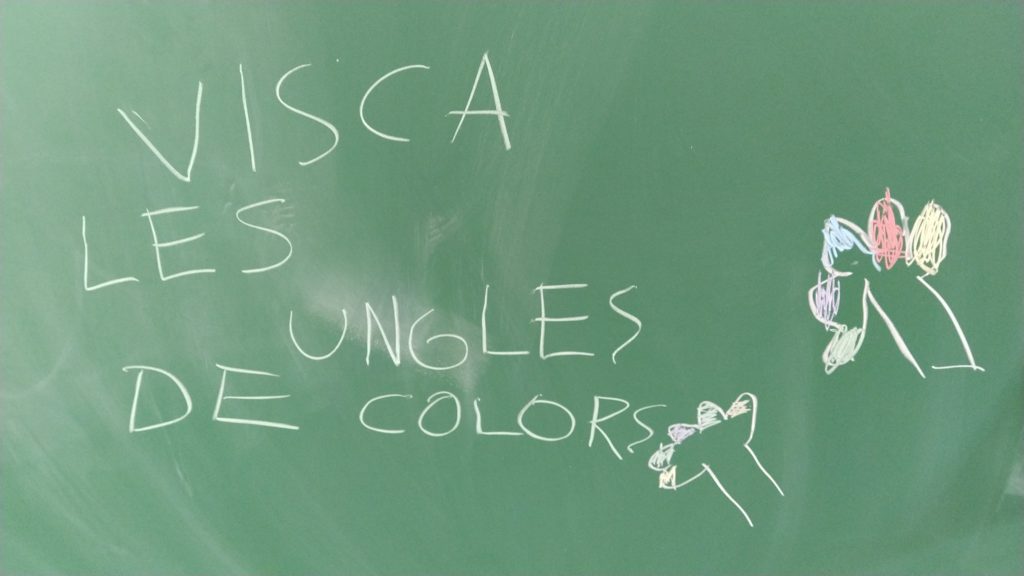 VISCA
LES
UNGLES
DE COLORS